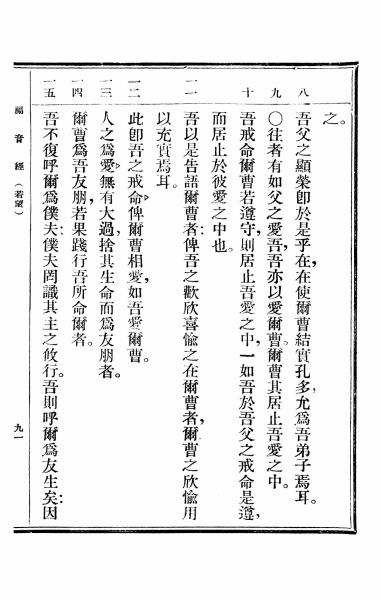 之。
八 吾父之顯榮卽於是乎在、在使爾曹結實孔多、允爲吾弟子焉耳。
九 〇往者有如父之愛吾、吾亦以愛爾曹。爾曹其居止吾愛之中。
十 吾戒命爾曹若遵守、則居止吾愛之中、一如吾於吾父之戒命是遵、
而居止於彼愛之中也。
一一 吾以是告語爾曹者：俾吾之歡欣喜愉之在爾曹者、爾曹之欣愉用
以充實焉耳。
一二 此卽吾之戒命、俾爾曹相愛、如吾愛爾曹。
一三 人之爲愛、無有大過、捨其生命而爲友朋者。
一四 爾曹爲吾友朋、若果踐行吾所命爾者。
一五 吾不復呼爾爲僕夫：僕夫罔識其主之攸行。吾則呼爾爲友生矣：因
福音經（若望）
九一